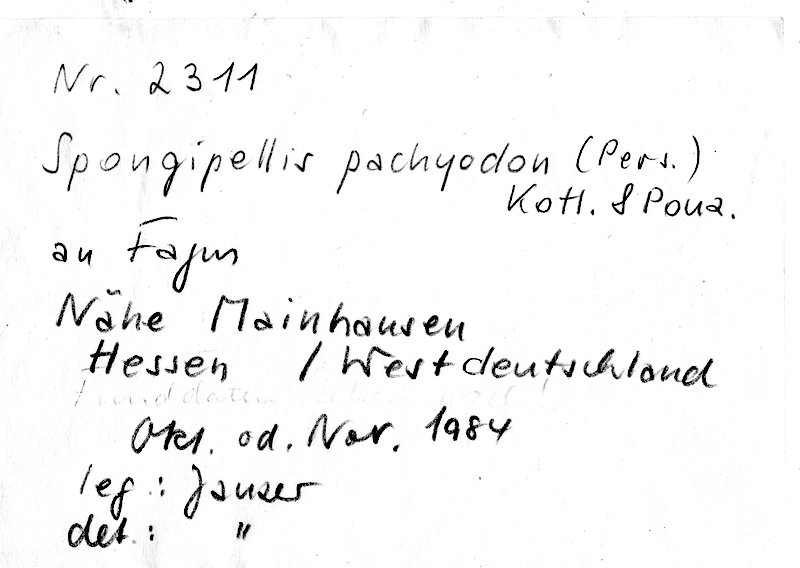 Nr. 2311
Spongipellis pachyodon (Pers.)
Kotl. & Pouz.
an Fagus
Nähe Mainhausen
Hessen / Westdeutschland
Funddaten
Okt. od. Nov. 1984
leg.: Janser
det.: "